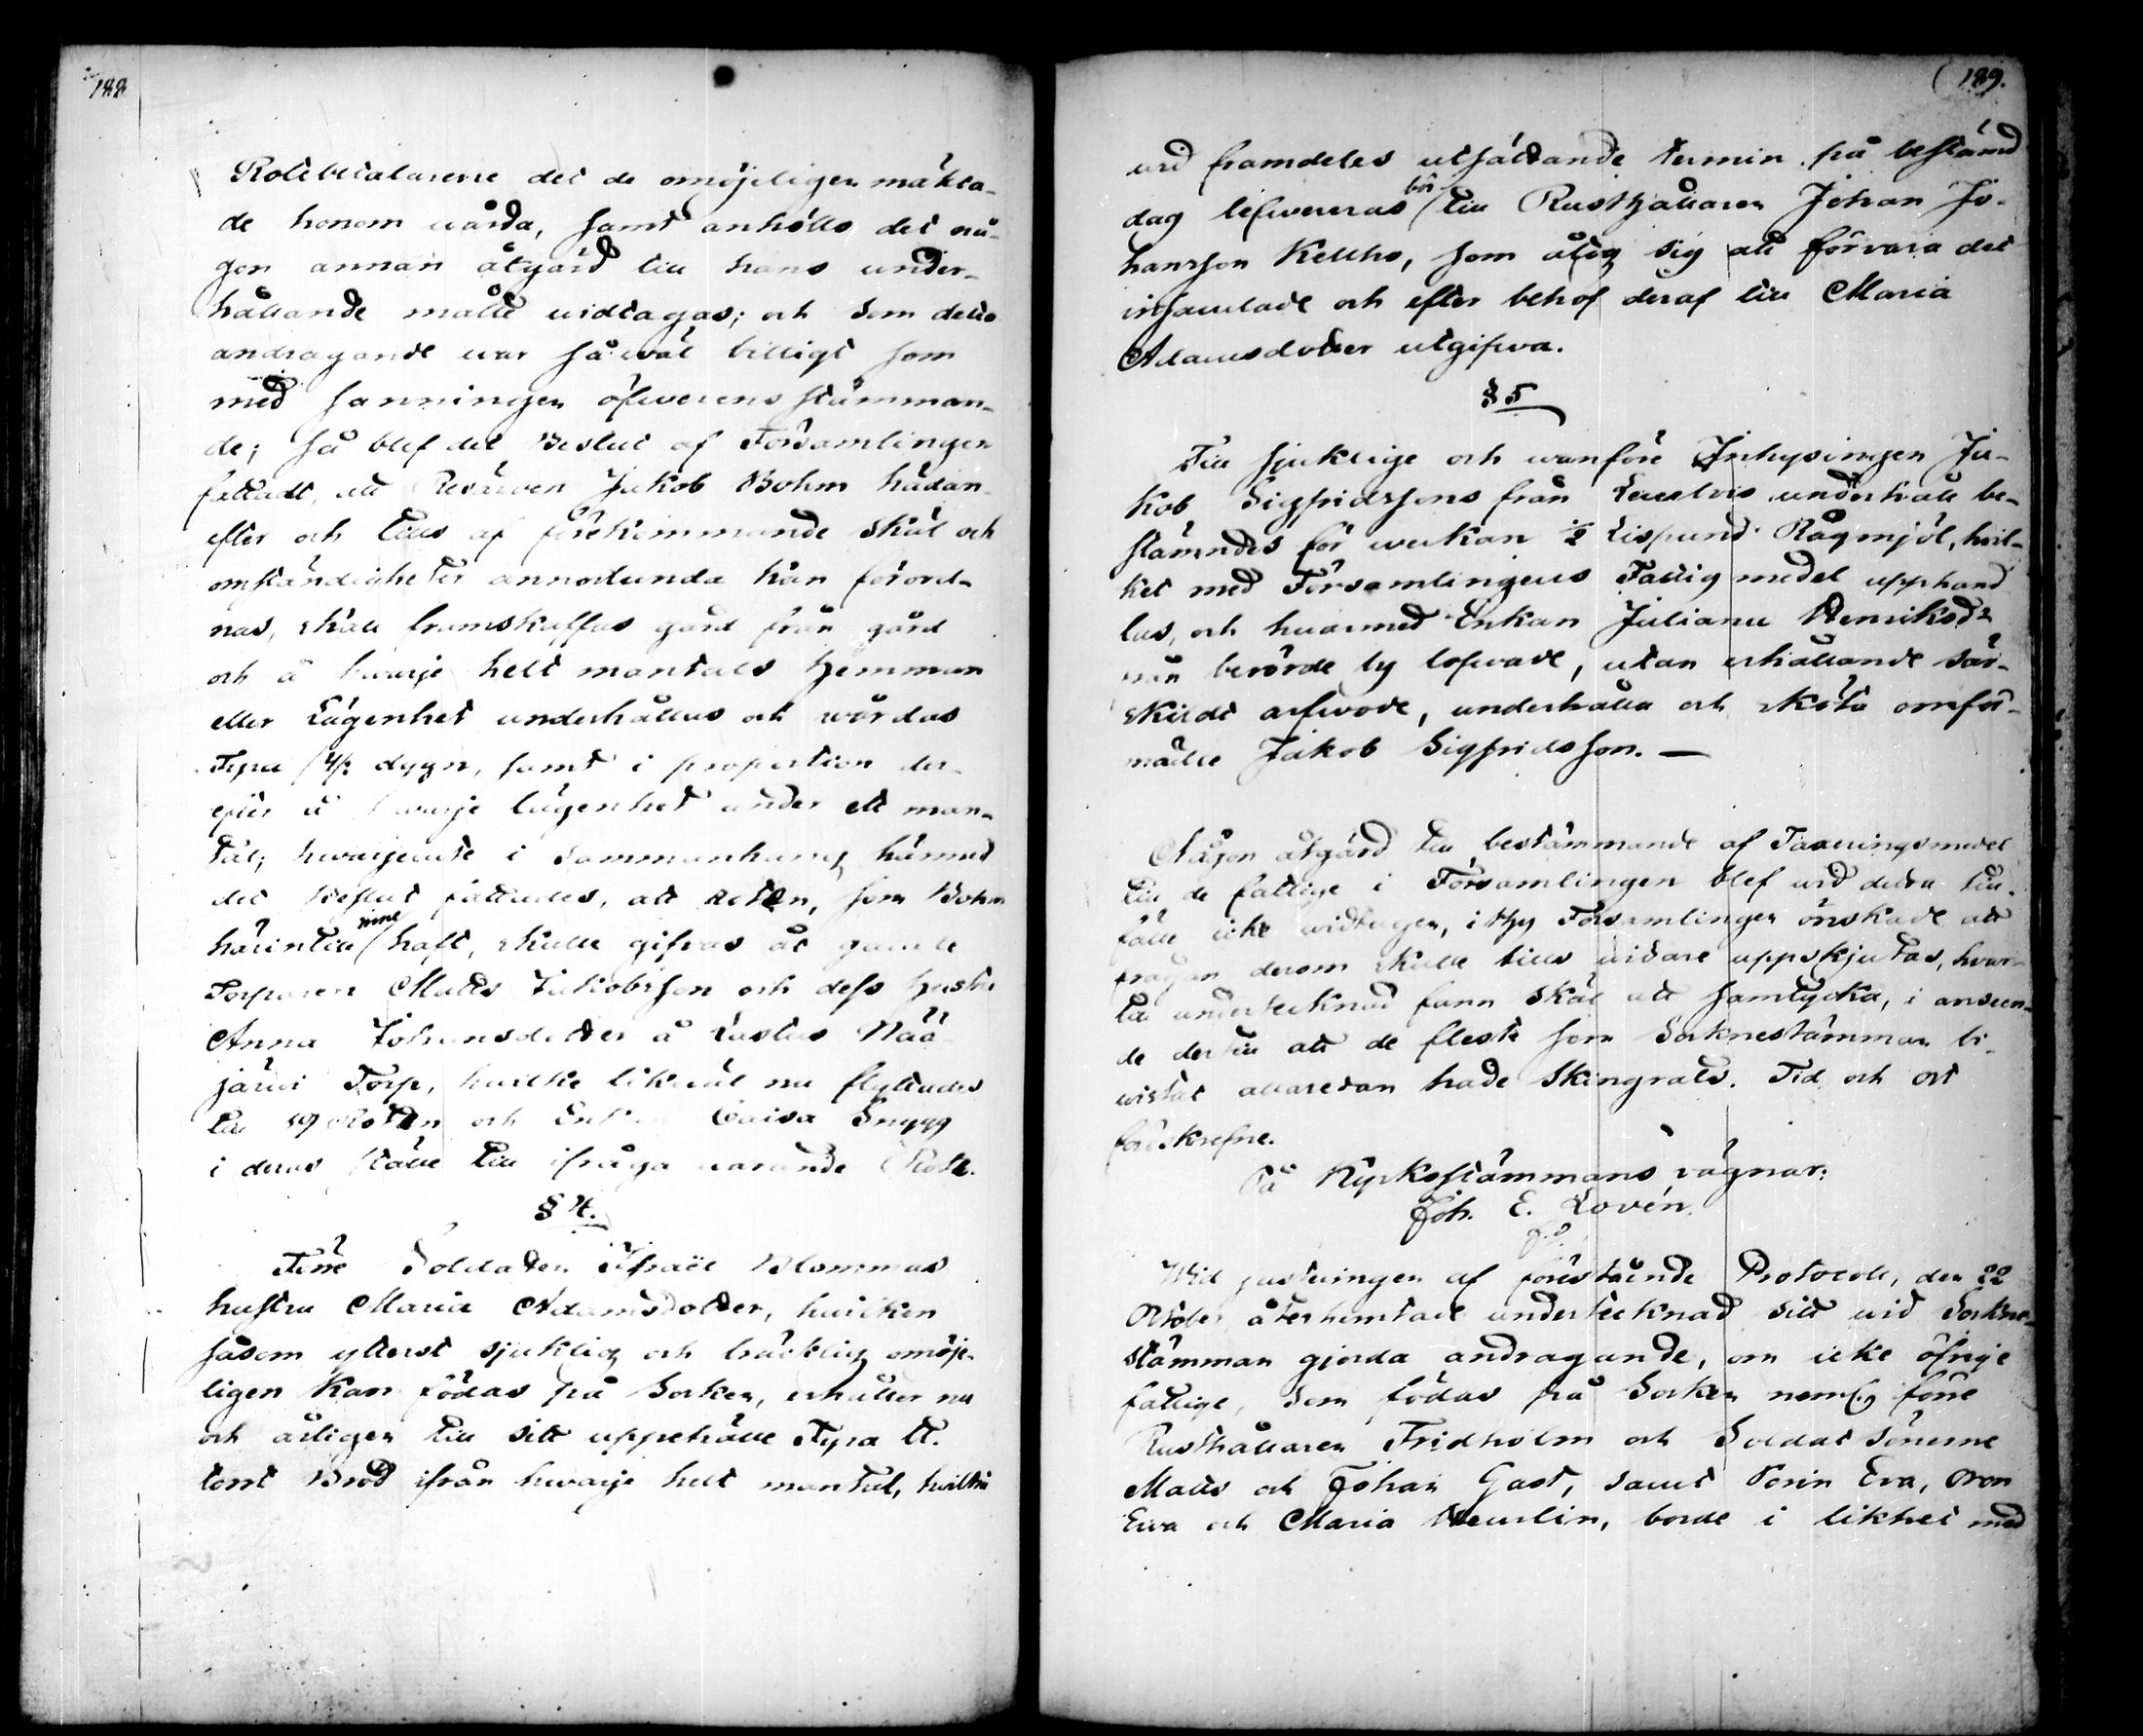 188
Rotebetalarene det de omöjeligen mäkta-
de honom wårda, samt anhölls det nå-
gon annan åtgärd till hans under-
hållande måtte widtagas; och som detta
andragande war så wäl billigt som
med sanningen öfwerensstämman-
de; så blef det Beslut af Församlingen
fattadt, att Reserven Jakob Bohm hädan-
efter och tills af förekommande skäl och
omständigheter annorlunda kan förord-
nas, skall framskaffas gård från gård
och å hwarje helt mantals Hemman
eller Lägenhet underhållas och wårdas
Fyra /4/: dygn, samt i proportion der-
efter å hwarje lägenhet under ett man-
tal; hwarjemte i sammanhang härmed
det Beslut fattades, att Roten, som Bohm
härintill inne haft, skulle gifvas åt gamle
Torparen Matts Jakobsson och dess Hustru
Anna Johansdotter å Lastus Nää
järwi Torp, hvilke likwäl nu flyttades
till 19 Roten och Enkan Caisa Snygg
i deras ställe till ifråga warande Rote.
§ 4.
Förre Soldaten Israël Blommas
hustru Maria Adamsdotter, hwilken
såsom ytterst sjuklig och bräcklig omöje-
ligen kan födas på Socken, erhåller nu
och årligen till sitt uppehälle Fyra ℔.
torrt Bröd ifrån hwarje helt mantal, hvilka
189.
wid framdeles utsättande termin på bestämd
dag lefwereras bör till Rusthållaren Johan Jo-
hansson Keltho, som åtog sig att förvara det
insamlade och efter behof deraf till Maria
Adamsdotter utgifwa.
§ 5
Till sjuklige och wanföre Inhysingen Ja-
kob Sigfridssons från underhåll be-
stämdes för weckan ½ Lispund Rågmjöl, hvil-
ket med Församlingens Fattigmedel upphand
las, och hwarmed Enkan Juliana Henriksdr
från berörde by lofwade, utan erhållande sär-
skildt arfwode, underhålla och sköta omför-
mälte Jakob Sigfridsson. —
Någon åtgärd till bestämmande af Taxeringsmedel
till de fattige i Församlingen blef wid detta till-
fälle icke widtagen, ithy Församlingen önskade att
frågan derom skulle tills widare uppskjutas, hvar-
till undertecknad fann skäl att samtycka, i anseen-
de dertill att de fleste som Socknestämman bi-
wistat allaredan hade skingrats. Tid och ort
förskrefne.
På Kyrkostämmans vägnar:
Joh. E. Lovén
Wid justeringen af förestående Protocoll, den 22
October återhemtade undertecknad sitt wid Sockne-
stämman gjorda andragande, om icke öfrige
fattige, som födas på Socken neml. förre
Rusthållaren Fridholm och Soldat sönerne
Matts och Johan Gast, samt Eva,
Ewa och Maria, borde i likhet med